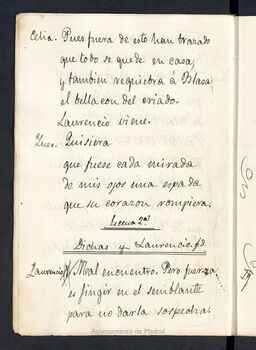 Celia. Pues fuera de esto han trazado
que todo se quede en casa,
y tambien requiebra á Blasa
el bellacon del criado.
Laurencio viene.
Ines. Quisiera
que fuese cada mirada
de mis ojos una espada
que su corazon rompiera.
Escena 2ª
Dichas y Laurencio
Laurencio Mal encuentro. Pero fuerza
es fingir en el semblante
para no darla sospecha.
Ayuntamiento de Madrid